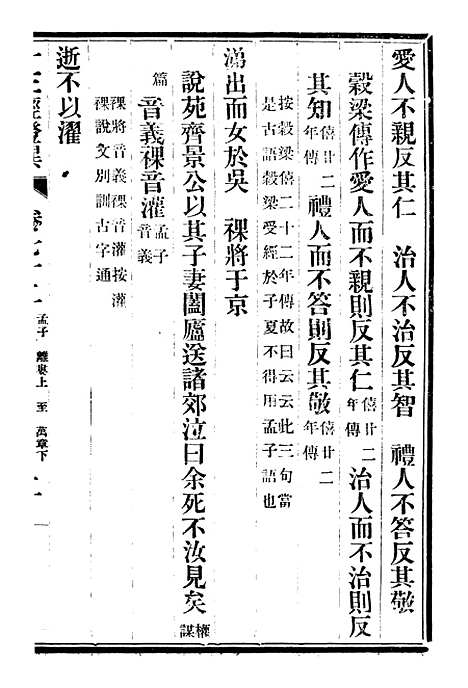 愛人不親反其仁　治人不治反其智　禮人不答反其敬
穀梁傳作愛人而不親則反其仁僖廿二年傳治人而不治則反
其知僖廿二年傳禮人而不答則反其敬僖廿二年傳
按穀梁僖二十二年傳故曰云云此三句當
是古語穀梁受經於子夏不得用孟子語也
涕出而女於吳　祼將于京
說苑齊景公以其子妻闔廬送諸郊泣曰余死不汝見矣權謀
篇音義祼音灌孟子音義
祼將音義祼音灌按灌
祼說文別訓古字通
逝不以濯
孟子　離婁上　至　萬章下